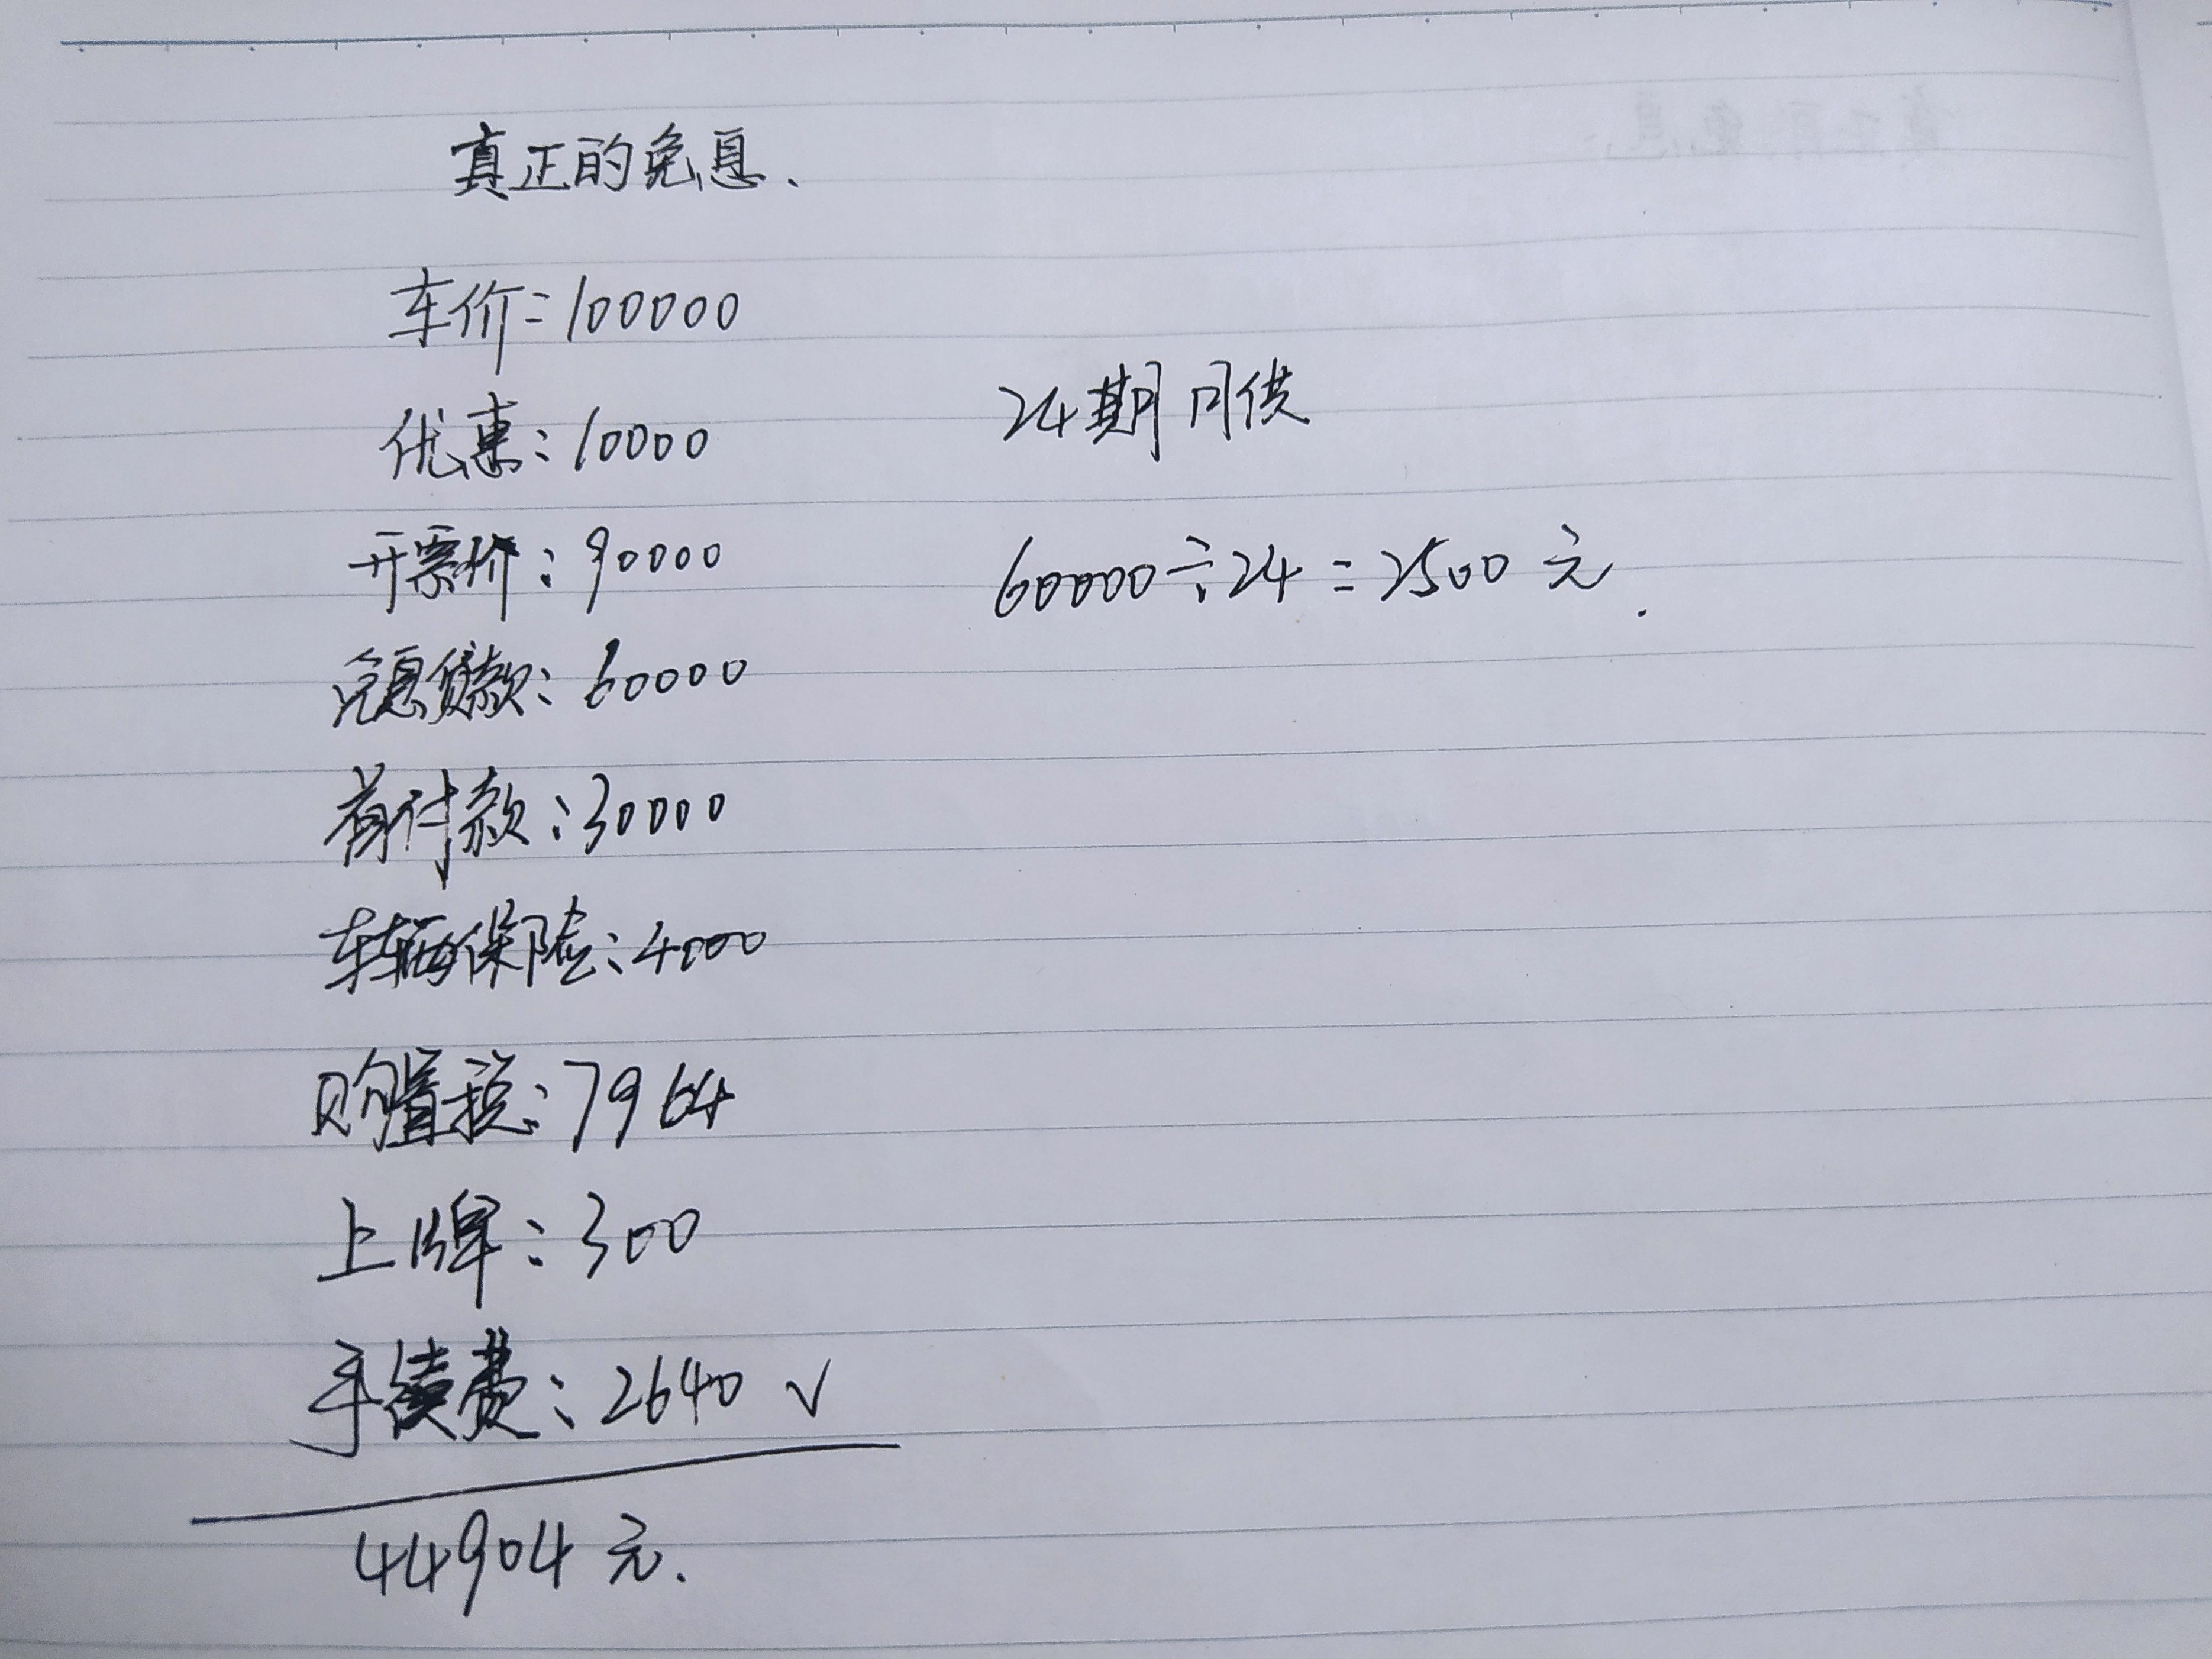 真正的免息、
车价:100000
优惠:10000
开票价:90000
免息贷款:60000
首付款:30000
车辆保险:4000
购置税:7964
上牌:300
手续费:2640 √
44904元.
24期月供
60000÷24=2500元.